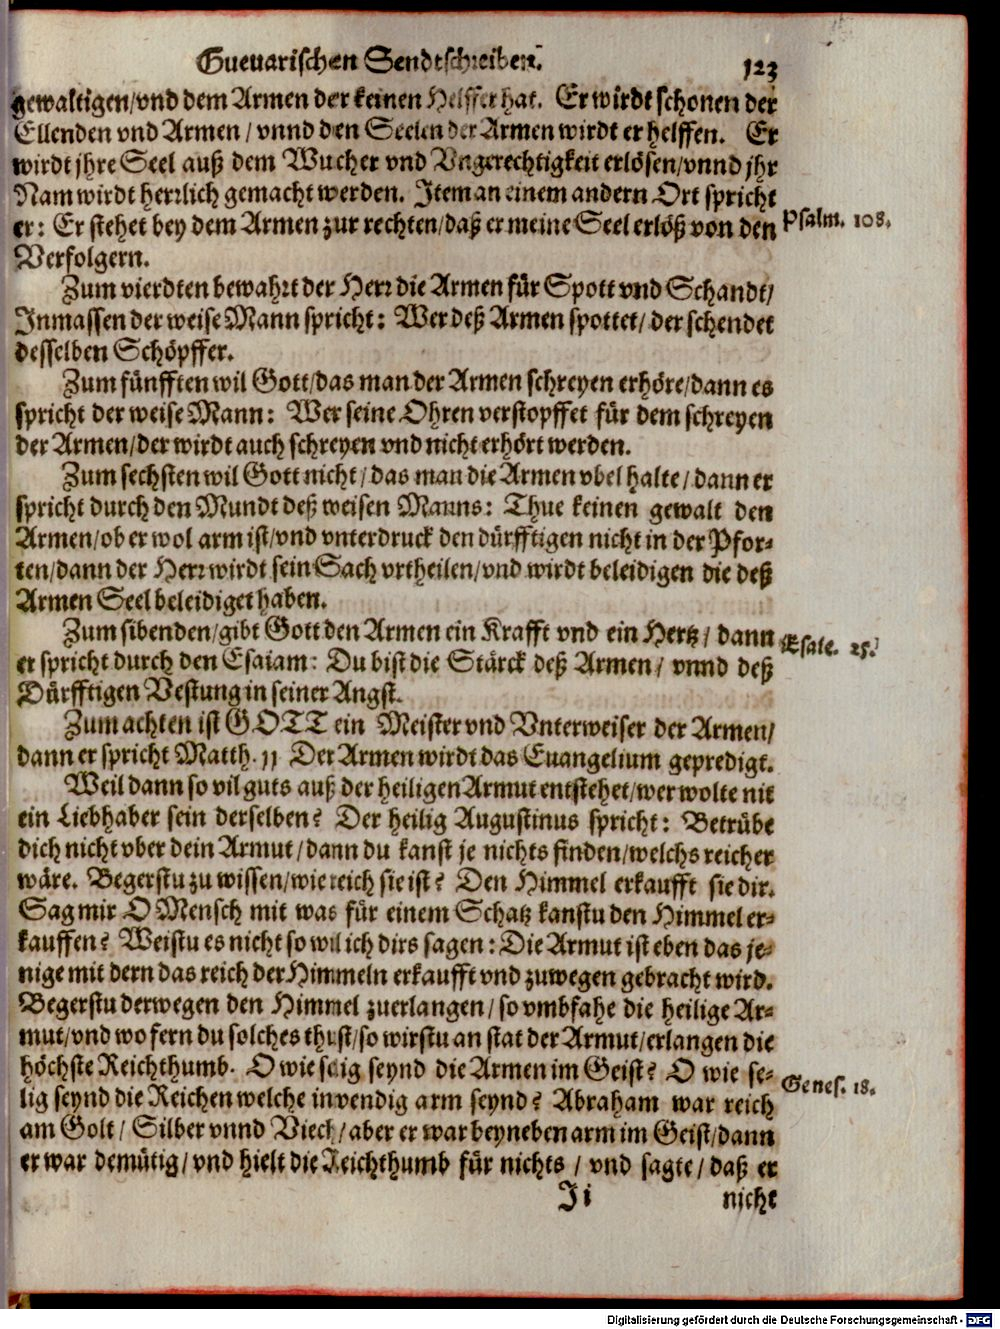 Gueuarischen Sendtschreiben. 123
gewaltigen/vnd dem Armen der keinen Helffer hat. Er wirdt schonen der
Ellenden vnd Armen/ vnnd den Seelen der Armen wirdt er helffen. Er
wirdt jhre Seel auß dem Wucher vnd Vngerechtigkeit erlösen/vnnd jhr
Nam wirdt herrlich gemacht werden. Item an einem andern Ort spricht
er: Er stehet bey dem Armen zur rechten/daß er meine Seel erlöß von den
Psalm. 108.
Verfolgern.
Zum vierdten bewahrt der Herr die Armen für Spott vnd Schandt/
Inmassen der weise Mann spricht: Wer deß Armen spottet/ der schendet
desselben Schöpffer.
Zum fünfften wil Gott/das man der Armen schreyen erhöre/dann es
spricht der weise Mann: Wer seine Ohren verstopffet für dem schreyen
der Armen/der wirdt auch schreyen vnd nicht erhört werden.
Zum sechsten wil Gott nicht/ das man die Armen vbel halte/ dann er
spricht durch den Mundt deß weisen Manns: Thue keinen gewalt den
Armen/ob er wol arm ist/vnd vnterdruck den dürfftigen nicht in der Pfor-
ten/dann der Herr wirdt sein Sach vrtheilen/vnd wirdt beleidigen die deß
Armen Seel beleidiget haben.
Zum sibenden/gibt Gott den Armen ein Krafft vnd ein Hertz/ dann
Esaie. 25.
er spricht durch den Esaiam: Du bist die Stärck deß Armen/ vnnd deß
Dürfftigen Vestung in seiner Angst.
Zum achten ist GOTT ein Meister vnd Vnterweiser der Armen/
dann er spricht Matth. 11 Der Armen wirdt das Euangelium gepredigt.
Weil dann so vil guts auß der heiligen Armut entstehet/wer wolte nit
ein Liebhaber sein derselben? Der heilig Augustinus spricht: Betrübe
dich nicht vber dein Armut/dann du kanst je nichts finden/welchs reicher
wäre. Begerstu zu wissen/wie reich sie ist? Den Himmel erkaufft sie dir.
Sag mir O Mensch mit was für einem Schatz kanstu den Himmel er-
kauffen? Weistu es nicht so wil ich dirs sagen: Die Armut ist eben das je-
nige mit dern das reich der Himmeln erkaufft vnd zuwegen gebracht wird.
Begerstu derwegen den Himmel zuerlangen/ so vmbfahe die heilige Ar-
mut/vnd wo fern du solches thust/so wirstu an stat der Armut/erlangen die
höchste Reichthumb. O wie selig seynd die Armen im Geist? O wie se-
Genes. 18.
lig seynd die Reichen welche inwendig arm seynd? Abraham war reich
am Golt/ Silber vnnd Viech/aber er war beyneben arm im Geist/dann
er war demütig/vnd hielt die Reichthumb für nichts / vnd sagte/ daß er
Ii nicht
Digitalisierung gefördert durch die Deutsche Forschungsgemeinschaft - DFG